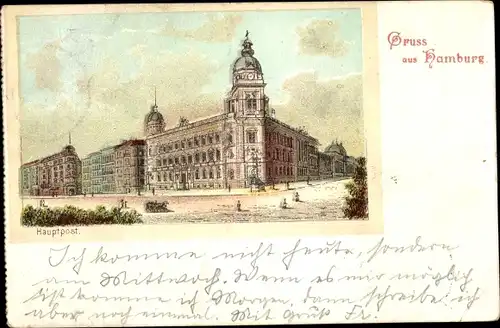 Gruss
aus Hamburg.
Hauptpost.
Ich komme nicht heute, sondern
am Mittwoch. Wenn es mir möglich
ist komme ich Morgen, dann schreibe ich
aber noch einmal. Mit Gruß Fr.